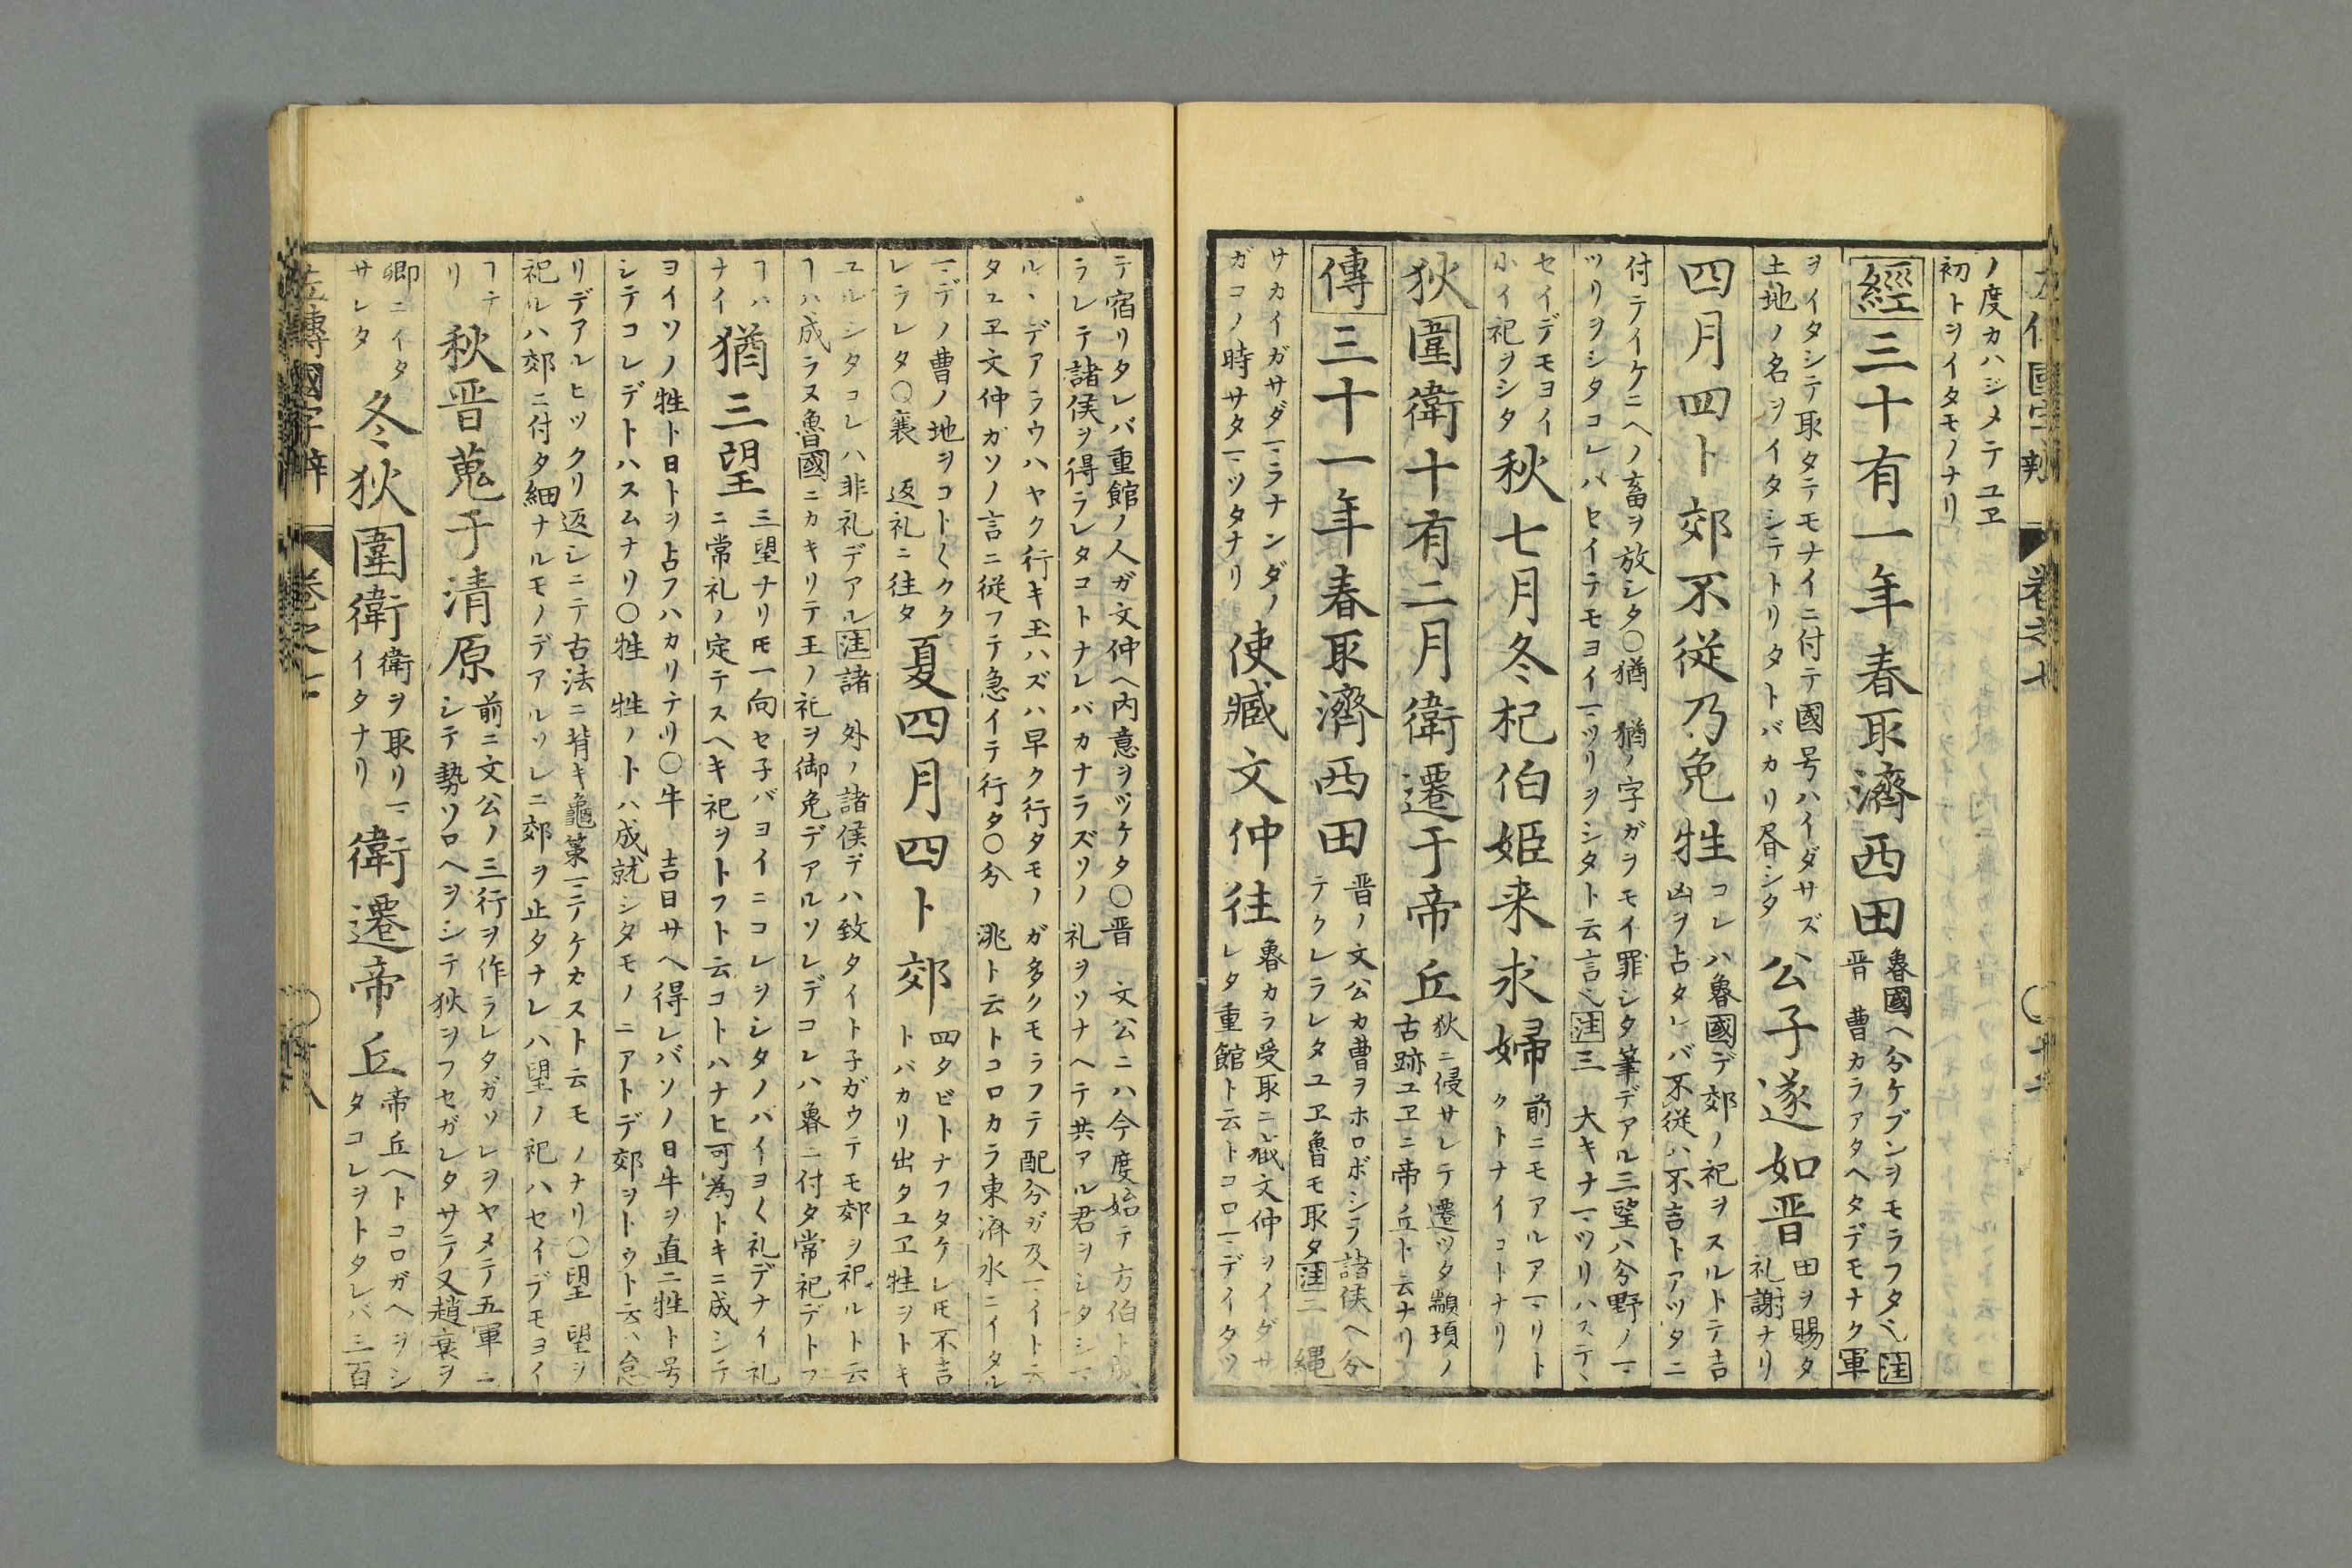 ノ度カハジメテユヱ
初トヲイタモノナリ
經三十有一年春取濟西田
魯國ヘ分ケブンヲモラフタ也注
晋 曹カラアタヘタデモナク軍
ヲイタシテ取タテモナイニ付テ國号ハイダサズ
土地ノ名ヲイタシテトリタトバカリ昏シタ
公子遂如晋
田ヲ賜タ
礼謝ナリ
四月四卜郊不従乃免牲
コレハ魯國デ郊ノ祀ヲスルトテ吉
凶ヲ占タレバ不従ハ不吉トアツタニ
付テイケニヘノ畜ヲ放シタ〇猶 猶ノ字ガヲモイ罪シタ筆デアル三望ハ分野ノ
ツリヲシタコレハセイテモヨイマツリヲシタト云言也注三 大キナマツリハステヽ
セイデモヨイ
小イ祀ヲシタ
秋七月冬杞伯姫来求婦
前ニモアルアマリト
クトナイコトナリ
狄圍衛十有二月衛遷于帝丘
狄ニ侵サレテ遷ツタ顓頊ノ
古跡ユヱニ帝丘ト云ナリ
傳三十一年春取濟西田
晋ノ文公カ曹ヲホロボシテ諸侯ヘ分
テクレラレタユヱ魯モ取タ注二 縄
サカイガサダマラナンダノ
ガコノ時サタマツタナリ
使臧文仲往
魯カラ受取ニ臧文仲ヲイダサ
レタ重館ト云トコロマデイタツ
テ宿リタレバ重館ノ人ガ文仲ヘ内意ヲツケタ〇晋 文公ニハ今度始テ方伯ト成
ラレテ諸侯ヲ得ラレタコトナレバカナラズソノ礼ヲソナヘテ共アル君ヲシタシマ
ルヽデアラウハヤク行キ玉ハズハ早ク行タモノガ多クモラフテ配分ガ及マイト云
タユヱ文仲ガソノ言ニ従フテ急イテ行タ〇分 洮ト云トコロカラ東濟水ニイタル
マデノ曹ノ地ヲコト〱クク
レラレタ〇襄 返礼ニ往タ
夏四月四卜郊
四タビトナフタケレ𪜈不吉
トバカリ出タユヱ牲ヲトキ
ユルシタコレハ非礼デアル注諸 外ノ諸侯デハ致タイト子ガウテモ郊ヲ祀ルト云
ヿハ成ラヌ魯國ニカキリテ王ノ祀ヲ御免デアルソレデコレハ魯ニ付タ常祀デトフ
ヿハ
ナイ
猶三望
三望ナリ𪜈一向セ子バヨイニコレヲシタノバイヨ〱礼デナイ礼
ニ常礼ノ定テスヘキ祀ヲトフト云コトハナヒ可為トキニ成シテ
ヨイソノ牲ト日トヲ占フハカリテリ〇牛 吉日サヘ得レバソノ日牛ヲ直ニ牲ト号
シテコレデトハスムナリ〇牲 牲ノトハ成就シタモノニアトデ郊ヲトウト云ハ怠
リデアルヒツクリ返シニテ古法ニ背キ龜筴ヲケカストモ云モノナリ〇望 望ヲ
祀ルハ郊ニ付タ細ナルモノデアルソレニ郊ヲ止タナレハ望ノ祀ハセイデモヨイ
ヿナ
リ
秋晋蒐于清原
前ニ文公ノ三行ヲ作ラレタガソレヲヤメテ五軍ニ
シテ勢ソロヘヲシテ狄ヲフセガレタサテ又趙衰ヲ
卿ニイタ
サレタ
冬狄圍衛
衛ヲ取リマ
イタナリ
衛遷帝丘
帝丘ヘトコロガヘヲシ
タコレヲトタレバ三百
左傳國字辯
巻之七